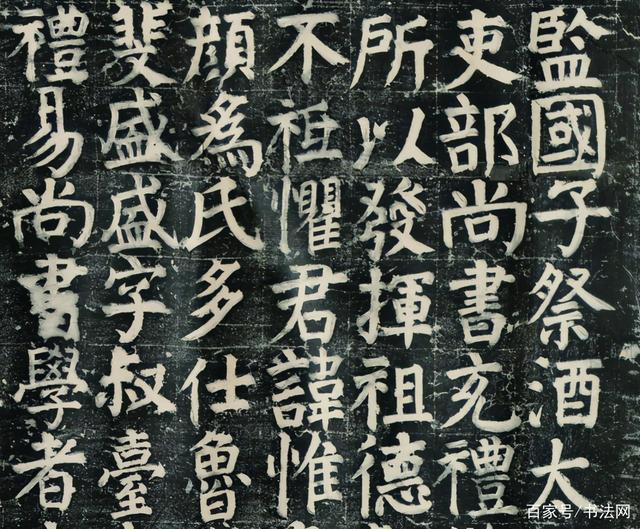 監國子祭酒大
吏部尚書充禮
所以發揮祖德
不祗懼君諱惟
顏為氏多仕魯
斐盛盛字叔臺
禮易尚書學者
百家号/书法网